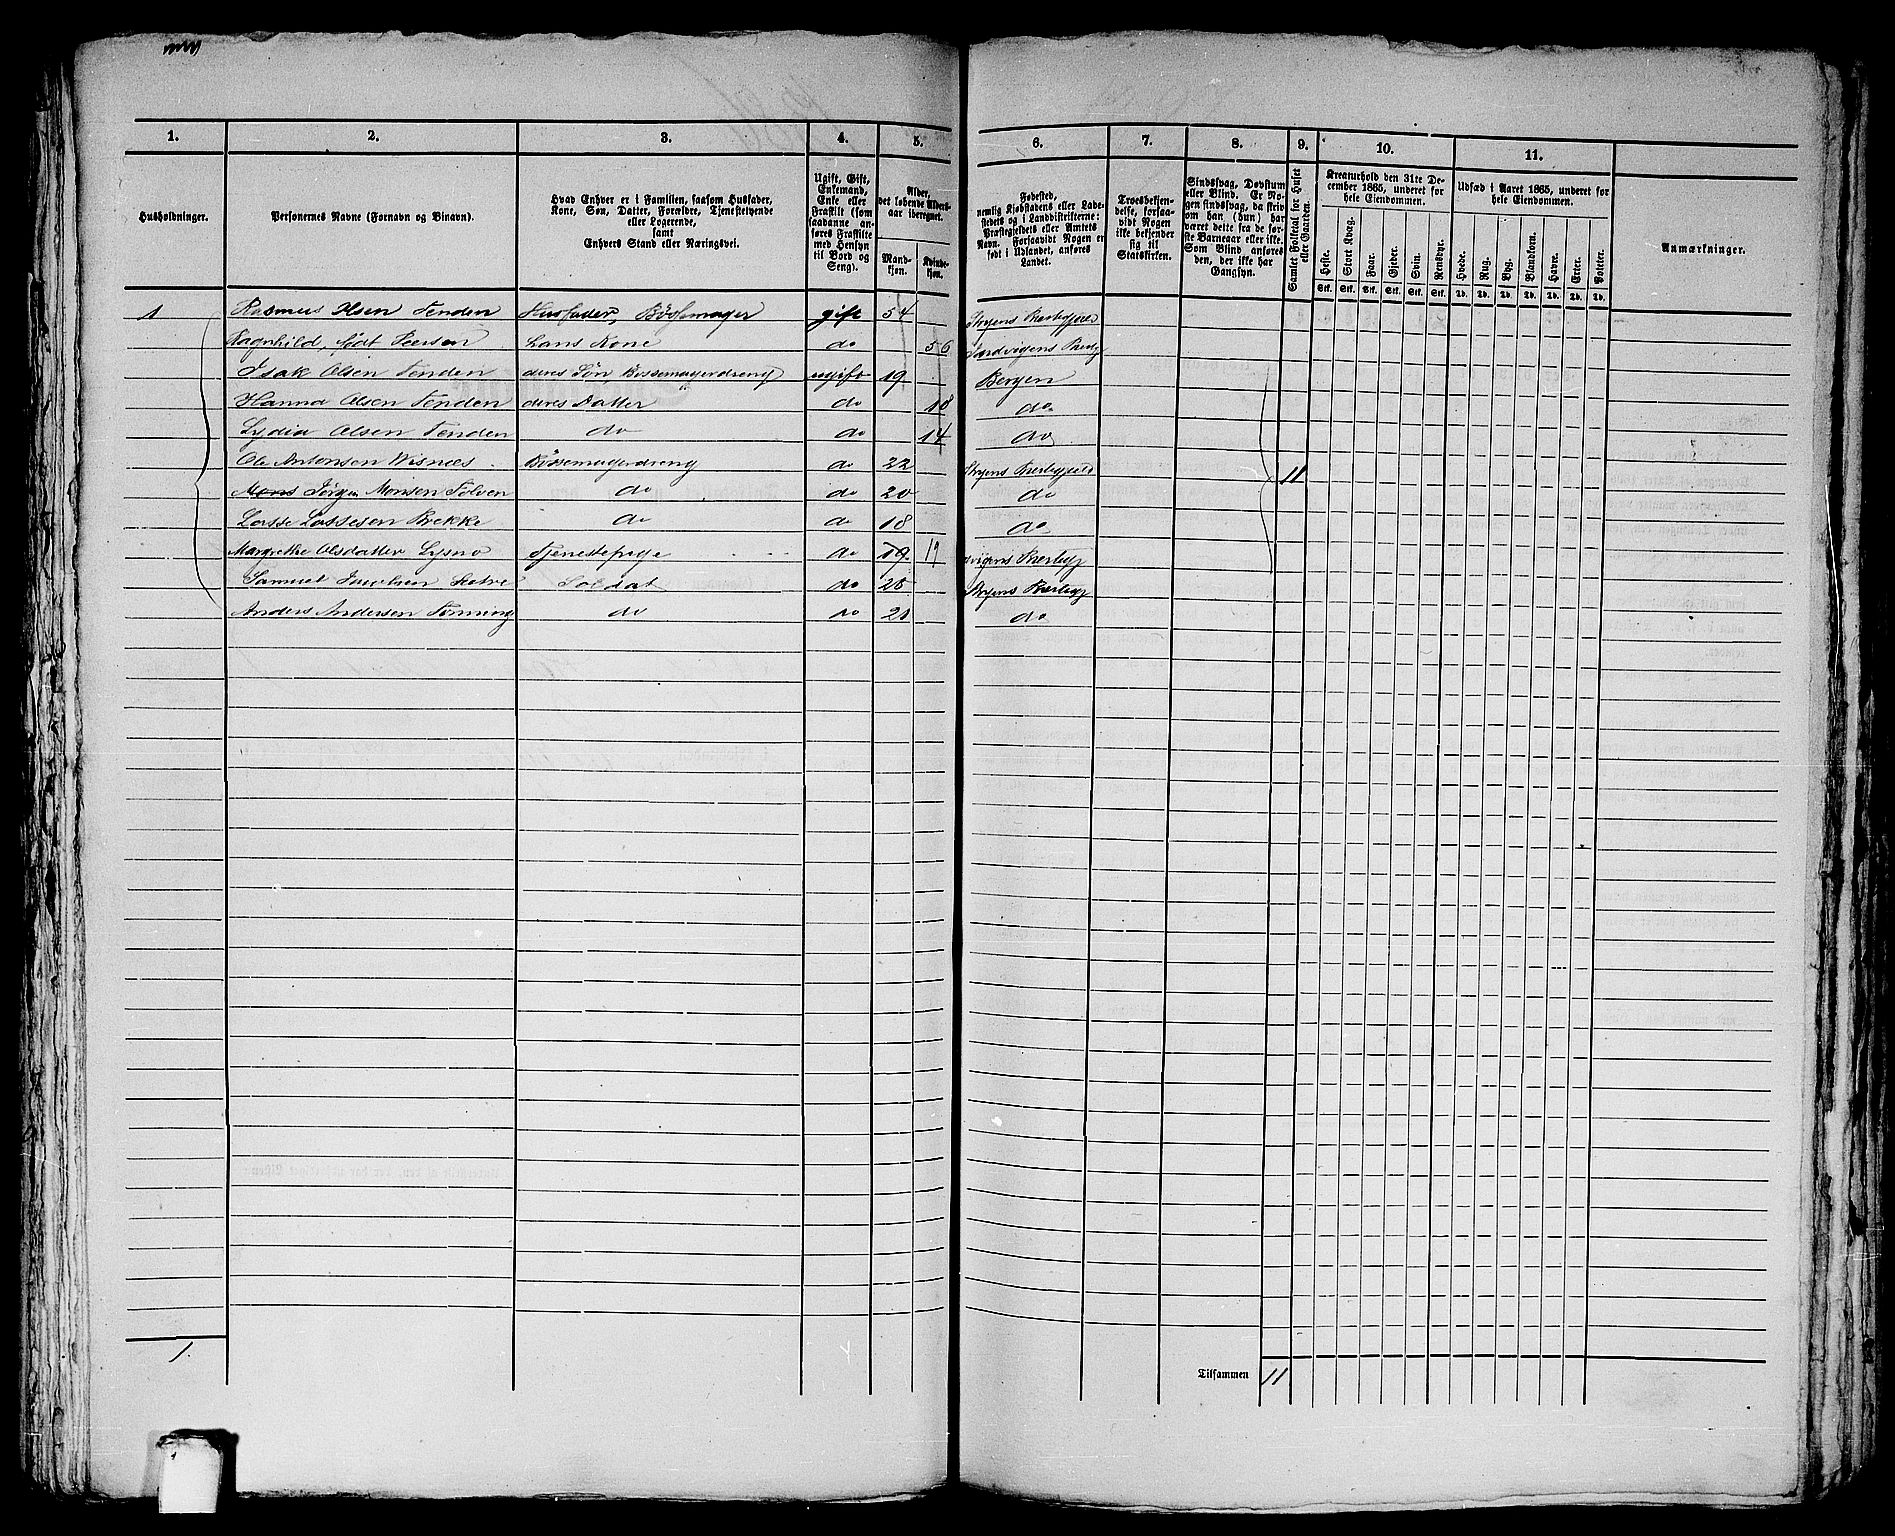 1. 2. 3. 4. 5. 6. 7. 8. 9. 10. 11.
Husholdninger.
Personernes Navne (Fornavn og Binavn).
Hvad Enhver er i Familien, saasom Husfader,
Kone, Søn, Datter, Forældre, Tjenestetyende
eller Logerende,
samt
Enhvers Stand eller Næringsvei.
Ugift, Gift,
Enkemand,
Enke eller
Fraskilt (som
saadanne an-
føres Fraskilte
med Hensyn
til Bord og
Seng).
Alder,
det løbende Alders-
aar iberegnet.
Mand-
kjøn.
Kvinde-
kjøn.
Fødested,
nemlig Kjøbstadens eller Lade-
stedets og i Landdistrikterne:
Præstegjeldets eller Amtets
Navn. Forsaavidt Nogen er
født i Udlandet, anføres
Landet.
Troesbekjen-
delse, forsaa-
vidt Nogen
ikke bekjender
sig til
Statskirken.
Sindssvag, Døvstum
eller Blind. Er No-
gen sindssvag, da skriv
om han (hun) har
været dette fra de før-
ste Barneaar eller ikke.
Som Blind anføres
den, der ikke har
Gangsyn.
Samlet Folketal for Huset
eller Gaarden.
Kreaturhold den 31te De-
cember 1865, underet for
hele Eiendommen.
Heste. Stort Kvæg. Faar. Gjeder. Svin. Rensdyr.
Stk. Stk. Stk. Stk. Stk. Stk.
Udsæd i Aaret 1865, underet for
hele Eiendommen.
Hvede. Rug. Byg. Blandkorn. Havre. Erter. Poteter.
Td. Td. Td. Td. Td. Td. Td.
Anmærkninger.
1 Rasmus Olsen Tenden Husfader, Bøssemager gift 54 Stryens Præstegjeld
Ragnhild, født Peersen hans Kone do 56
Isak Olsen Tenden deres Søn, Bøssemagerdreng ugift 19 Bergen
Hanna Olsen Tenden deres Datter do 18 do
Lydia Olsen Tenden do do 14 do
Ole Antonsen Wisnes Bøssemagerdreng do 22 Stryens Præstegjeld 11
Mons Jørgen Monsen Tolven do do 20 do
Lasse Lassesen Brekke do do 18 do
Margrethe Olsdatter Tjenestepige do 19 19
Samuel Jacobsen Soldat do 20 Stryens Præstegj
Anders Andersen Tonning do do 21 do
1.
Tilsammen 11